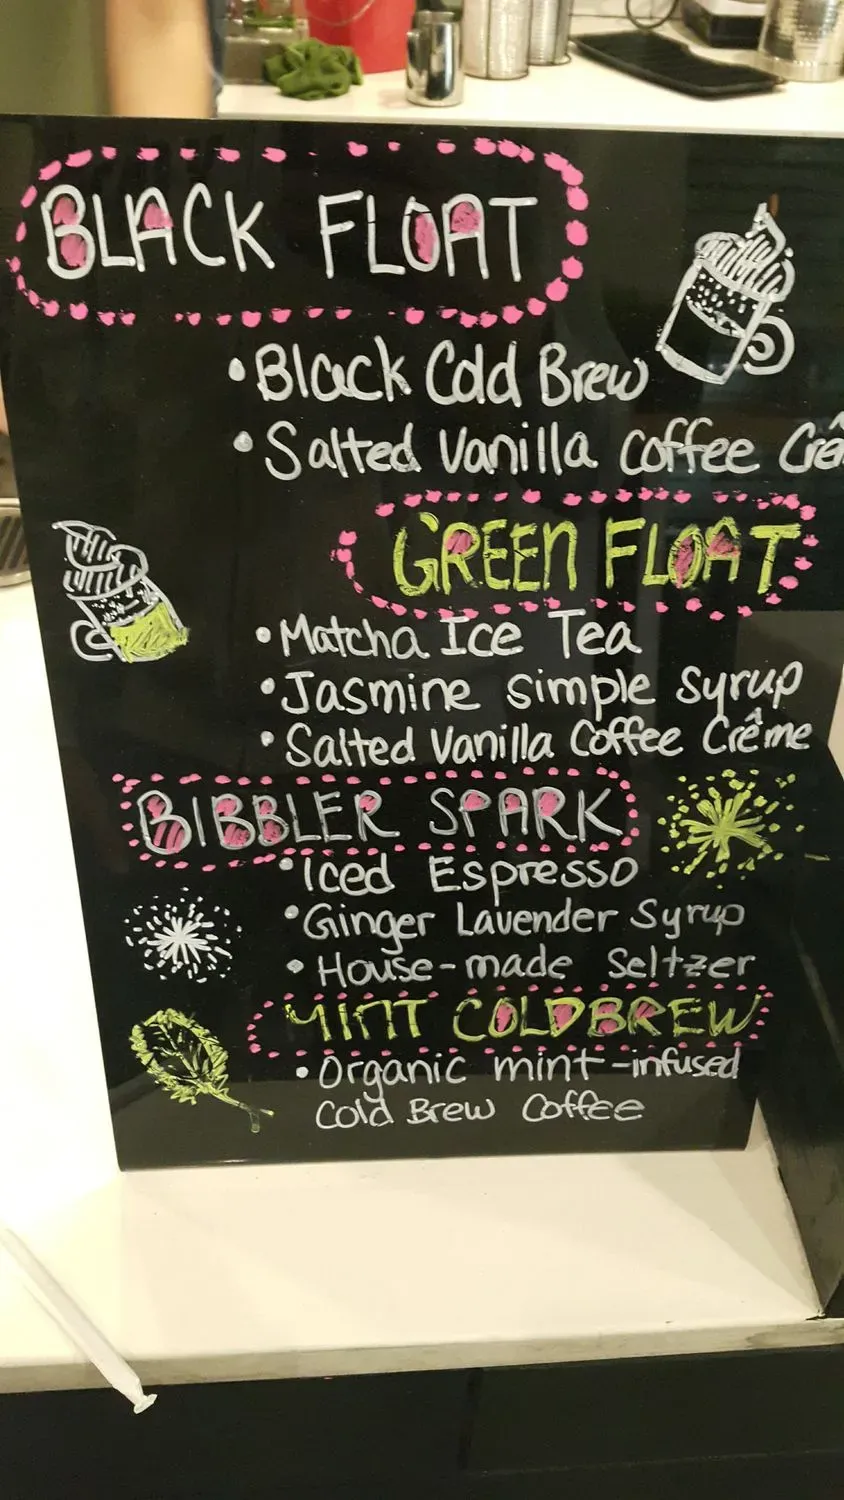 BLACK FLOAT
• Black Cold Brew
• Salted Vanilla Coffee Crê
GREEN FLOAT
• Matcha Ice Tea
• Jasmine Simple Syrup
• Salted Vanilla Coffee Crême
BIBBLER SPARK
• Iced Espresso
• Ginger Lavender Syrup
• House-made Seltzer
MINT COLDBREW
• Organic mint-infused
Cold Brew Coffee